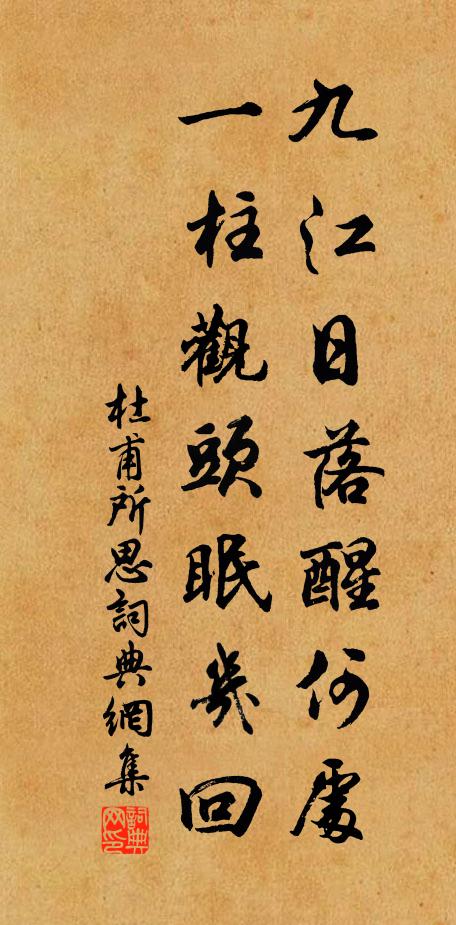 九江日落醒何處
一柱觀頭眠幾回
杜甫所思詞典網集
詞典網印